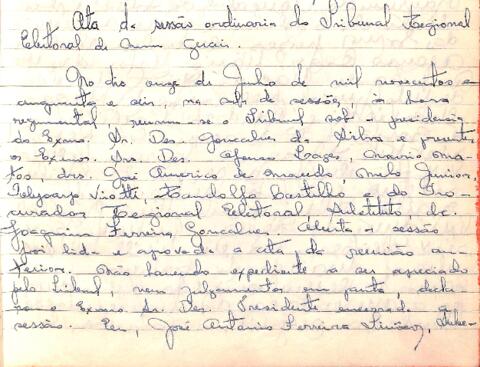 Ata da sessão ordinaria do Tribunal Regional
Eleitoral de Minas Gerais.
No dia onze de Julho de mil novecentos e
cinquenta e seis, na sala de sessões, à hora
regimental, reuniu-se o Tribunal sob a presidencia
do Exmo. Sr. Des. Goncalves da Silva e presentes
os Exmos. Srs. Des. Afonso Lages, Onorio
tos, drs. José Americo de Macedo Melo Junior,
Viotti, Randolfo Castilho e do Pro-
curador Regional Eleitoral, substituto, dr.
Joaquim Ferreira Goncalves. Aberta a sessão
foi lida e aprovada a ata da reunião an-
terior. Não havendo expediente a ser apreciado
pelo tribunal, nem julgamentos em pauta, decla-
rou o Exmo. Sr. Des. Presidente encerrada a
sessão. Eu, José Antonio Ferreira